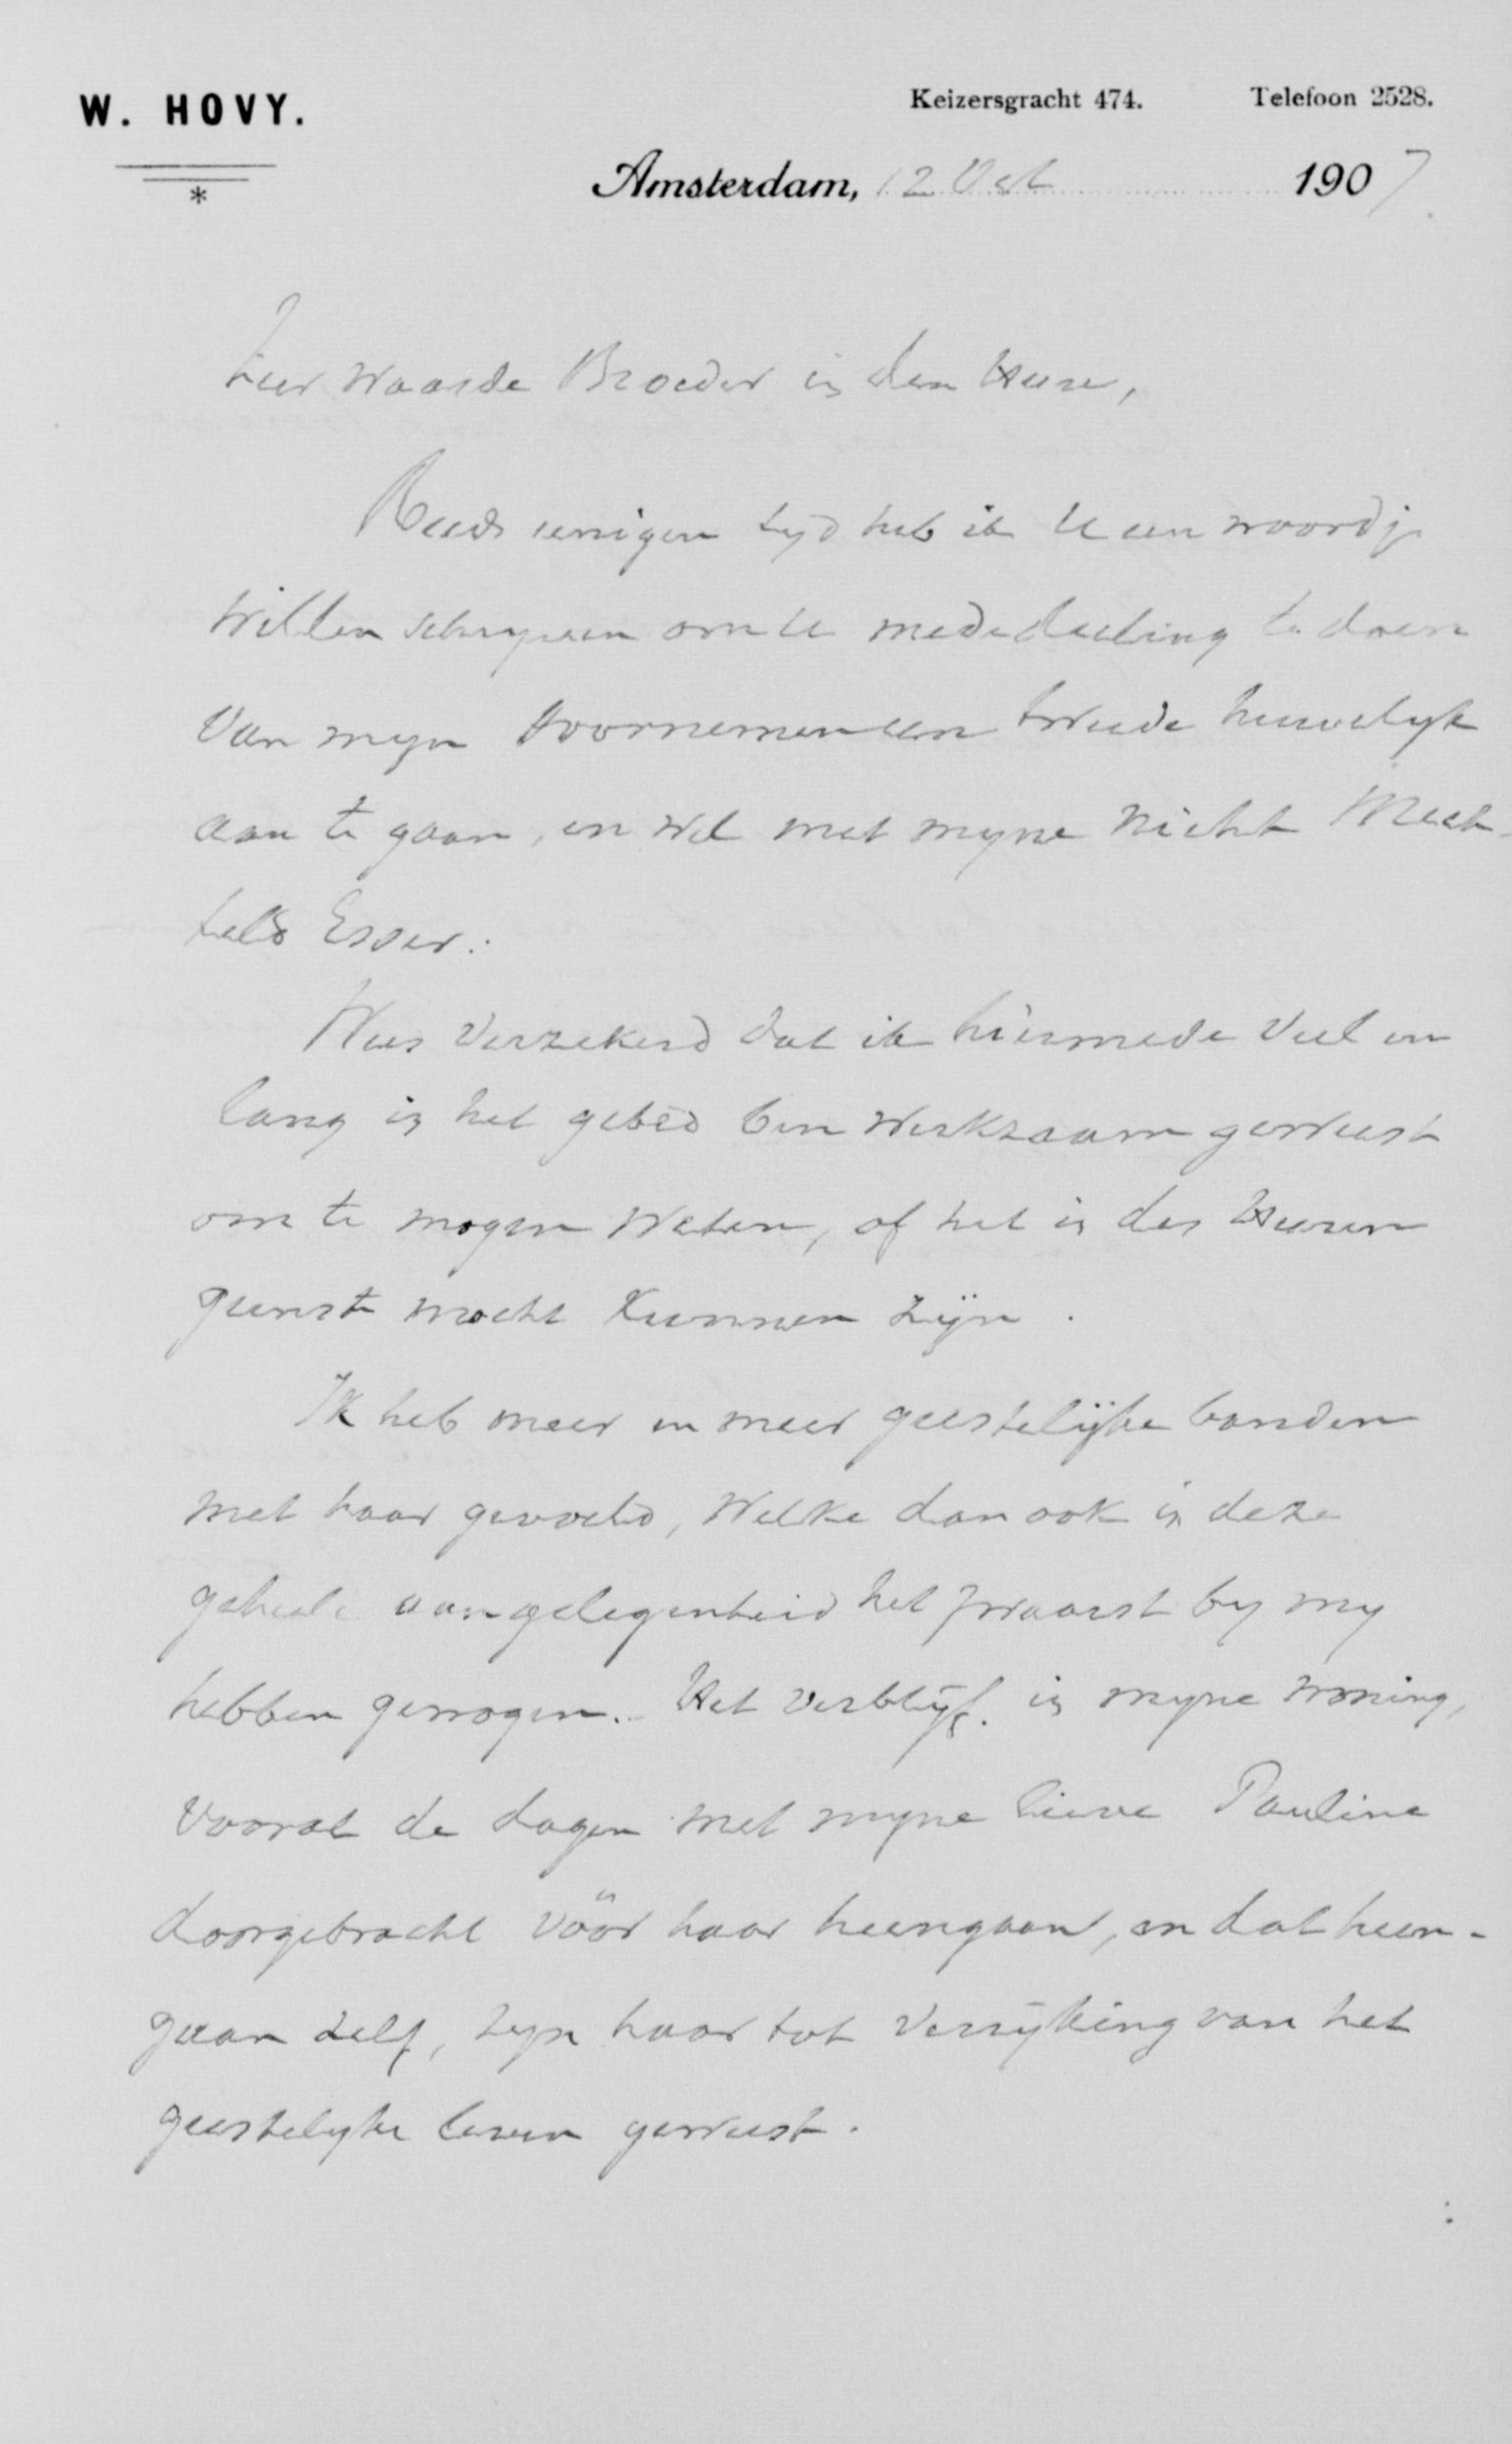 W. HOVY.
Keizersgracht 474. Telefoon 2528.
Amsterdam, 12 Oct 1907.
Zeer Waarde Broeder in den Heere,
Reeds eenigen tyd heb ik U een woordje
willen schryven om U mededeeling te doen
van myn voornemen een tweede huwelyk
aan te gaan, en wel met myne Nicht Mech-
teld Esser.
Wees verzekerd dat ik hiermede veel en
lang in het gebed ben werkzaam geweest
om te mogen weten, of het in des Heeren
gunst mocht kunnen zijn.
Ik heb meer en meer geestelijke banden
met haar gevoeld, welke dan ook in deze
geheele aangelegenheid het zwaarst by my
hebben gewogen. Het verblijf in myne woning,
vooral de dagen met myne lieve Pauline
doorgebracht vóór haar heengaan, en dat heen-
gaan zelf, zyn haar tot verryking van het
geestelyke leven geweest.